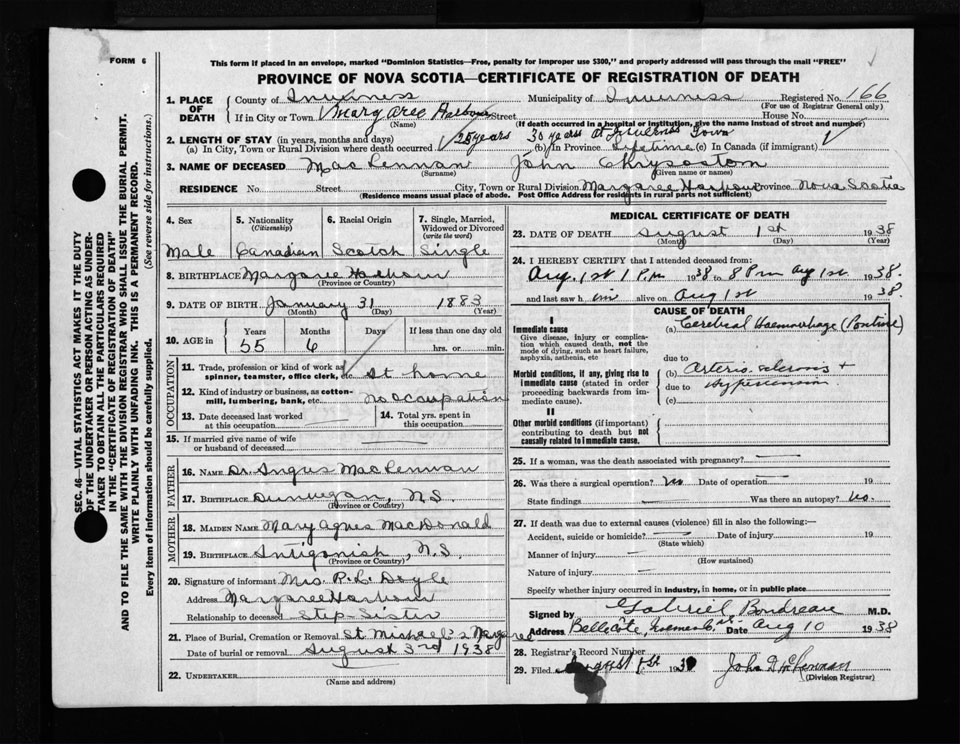 FORM 6
This form if placed in an envelope, marked "Dominion Statistics—Free, penalty for improper use $300," and properly addressed will pass through the mail "FREE"
PROVINCE OF NOVA SCOTIA—CERTIFICATE OF REGISTRATION OF DEATH
1. PLACE OF DEATH County of Inverness Municipality of Inverness Registered No. 166
(For use of Registrar General only)
If in City or Town Margaree Harbour Street House No.
(Name) (If death occurred in a hospital or institution, give the name instead of street and number)
2. LENGTH OF STAY (in years, months and days) 30 years at Inverness Town
(a) In City, Town or Rural Division where death occurred 25 years (b) In Province Lifetime (c) In Canada (if immigrant)
3. NAME OF DECEASED MacLennan John Chrysostom
(Surname) (Given name or names)
RESIDENCE No. Street City, Town or Rural Division Margaree Harbour Province Nova Scotia
(Residence means usual place of abode. Post Office Address for residents in rural parts not sufficient)
4. Sex 5. Nationality (Citizenship) 6. Racial Origin 7. Single, Married, Widowed or Divorced (write the word)
Male Canadian Scotch Single
8. BIRTHPLACE Margaree Harbour
(Province or Country)
9. DATE OF BIRTH January 31 1883
(Month) (Day) (Year)
10. AGE in Years Months Days If less than one day old
55 6 hrs. or min.
OCCUPATION
11. Trade, profession or kind of work as spinner, teamster, office clerk, etc. at home
12. Kind of industry or business, as cotton-mill, lumbering, bank, etc. no occupation
13. Date deceased last worked at this occupation 14. Total yrs. spent in this occupation
15. If married give name of wife or husband of deceased
FATHER
16. NAME Dr. Angus MacLennan
17. BIRTHPLACE Dunvegan, N.S.
(Province or Country)
MOTHER
18. MAIDEN NAME Mary Agnes MacDonald
19. BIRTHPLACE Antigonish, N.S.
(Province or Country)
20. Signature of informant Mrs. P. L. Doyle
Address Margaree Harbour
Relationship to deceased Step-Sister
21. Place of Burial, Cremation or Removal St. Michael's Margaree
Date of burial or removal August 3rd 1938
22. UNDERTAKER
(Name and address)
MEDICAL CERTIFICATE OF DEATH
23. DATE OF DEATH August 1st 1938
(Month) (Day) (Year)
24. I HEREBY CERTIFY that I attended deceased from:
Aug. 1st 1 P.m 1938 to 8 Pm Aug 1st 1938.
and last saw him alive on Aug 1st 1938.
CAUSE OF DEATH
I
Immediate cause (a) Cerebral Haemorrhage (Pontine)
Give disease, injury or complication which caused death, not the mode of dying, such as heart failure, asphyxia, asthenia, etc
due to
Morbid conditions, if any, giving rise to immediate cause (stated in order proceeding backwards from immediate cause). (b) Arterio sclerosis +
due to Hypertension
(c)
II
Other morbid conditions (if important) contributing to death but not causally related to immediate cause.
25. If a woman, was the death associated with pregnancy?
26. Was there a surgical operation? No Date of operation 19
State findings Was there an autopsy? No.
27. If death was due to external causes (violence) fill in also the following:—
Accident, suicide or homicide? Date of injury 19
(State which)
Manner of injury
(How sustained)
Nature of injury
Specify whether injury occurred in industry, in home, or in public place
Signed by Gabriel Boudreau M.D.
Address Belle Côte, Inverness Co. Date Aug 10 1938
28. Registrar's Record Number
29. Filed August 193 John D McLennan
(Division Registrar)
SEC. 46—VITAL STATISTICS ACT MAKES IT THE DUTY
OF THE UNDERTAKER OR PERSON ACTING AS UNDERTAKER TO OBTAIN ALL THE PARTICULARS REQUIRED
IN THE "CERTIFICATE OF REGISTRATION OF DEATH"
AND TO FILE THE SAME WITH THE DIVISION REGISTRAR WHO SHALL ISSUE THE BURIAL PERMIT.
WRITE PLAINLY WITH UNFADING INK. THIS IS A PERMANENT RECORD.
Every item of information should be carefully supplied. (See reverse side for instructions.)